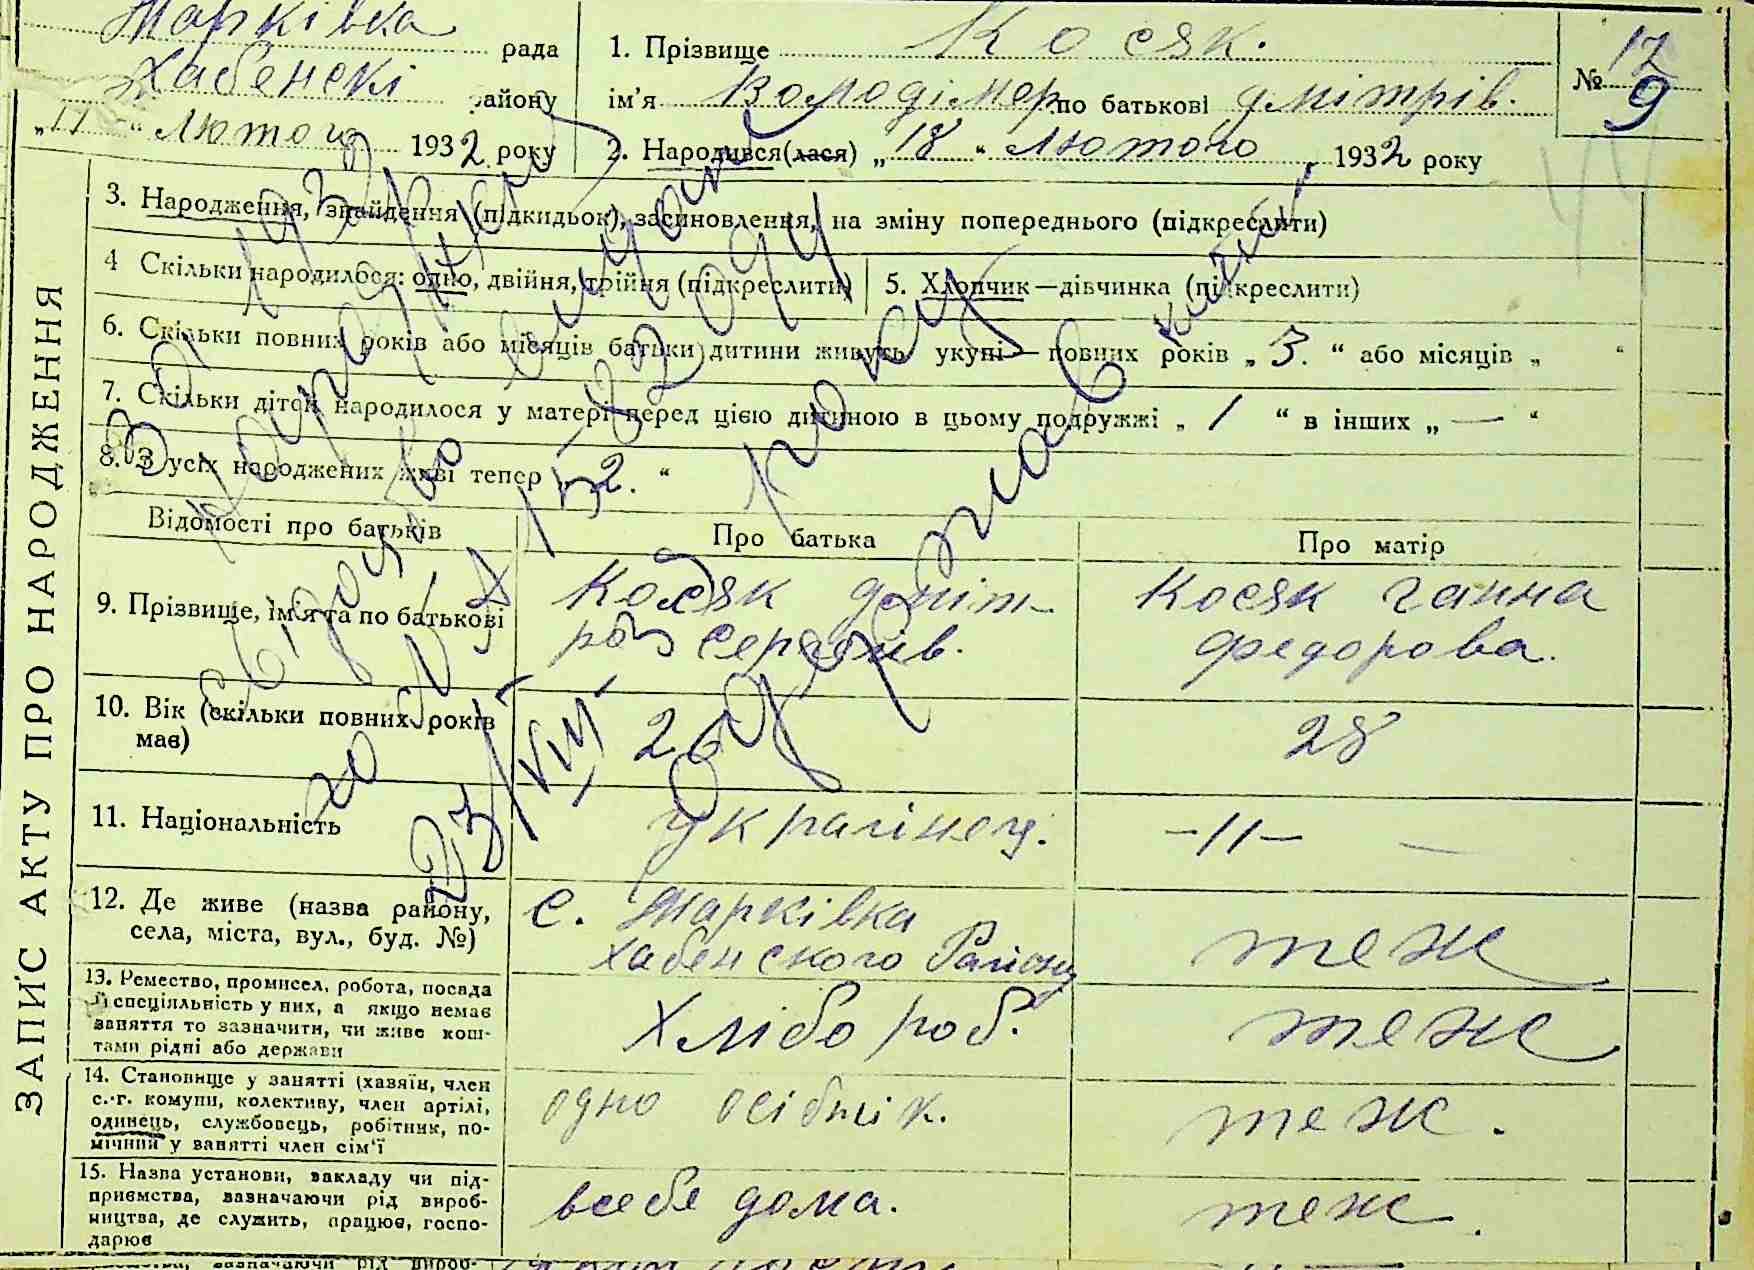 Жарківка рада
Хабенскі району
„17“ лютого 1932 року
1. Прізвище Косяк.
ім’я Володімер по батькові дмітрів.
№ 12
9
2. Народився(лася) „18“ Лютого 1932 року
ЗАПИС АКТУ ПРО НАРОДЖЕННЯ
3. Народження, знайдення (підкидьок), засиновлення, на зміну попереднього (підкреслити)
4 Скільки народилося: одно, двійня, трійня (підкреслити)
5. Хлопчик—дівчинка (підкреслити)
6. Скільки повних років або місяців батьки дитини живуть укупі— повних років „ 3. “ або місяців „ “
7. Скільки дітей народилося у матері перед цією дитиною в цьому подружжі „ 1 “ в інших „ — “
8. З усіх народжених живі тепер „ 2. “
Відомості про батьків
Про батька
Про матір
9. Прізвище, ім’я та по батькові
Косяк дміт-
ро Сергеів.
Косяк ганна
федорова.
10. Вік (скільки повних років
має)
26
28
11. Національність
Украгінец.
—//— —
12. Де живе (назва району,
села, міста, вул., буд. №)
с. Жарківка
хабенского Району
теж
13. Ремество, промисел, робота, посада
й спеціяльність у них, а якщо немає
заняття то зазначити, чи живе кош-
тами рідні або держави
Хлібороб.
теж
14. Становище у занятті (хазяїн, член
с.-г. комуни, колективу, член артілі,
одинець, службовець, робітник, по-
мічний у занятті член сім’ї
одно осібнік.
теж.
15. Назва установи, закладу чи під-
приємства, зазначаючи рід вироб-
ництва, де служить, працює, госпо-
дарює
всебе дома.
теж.
23/VIII